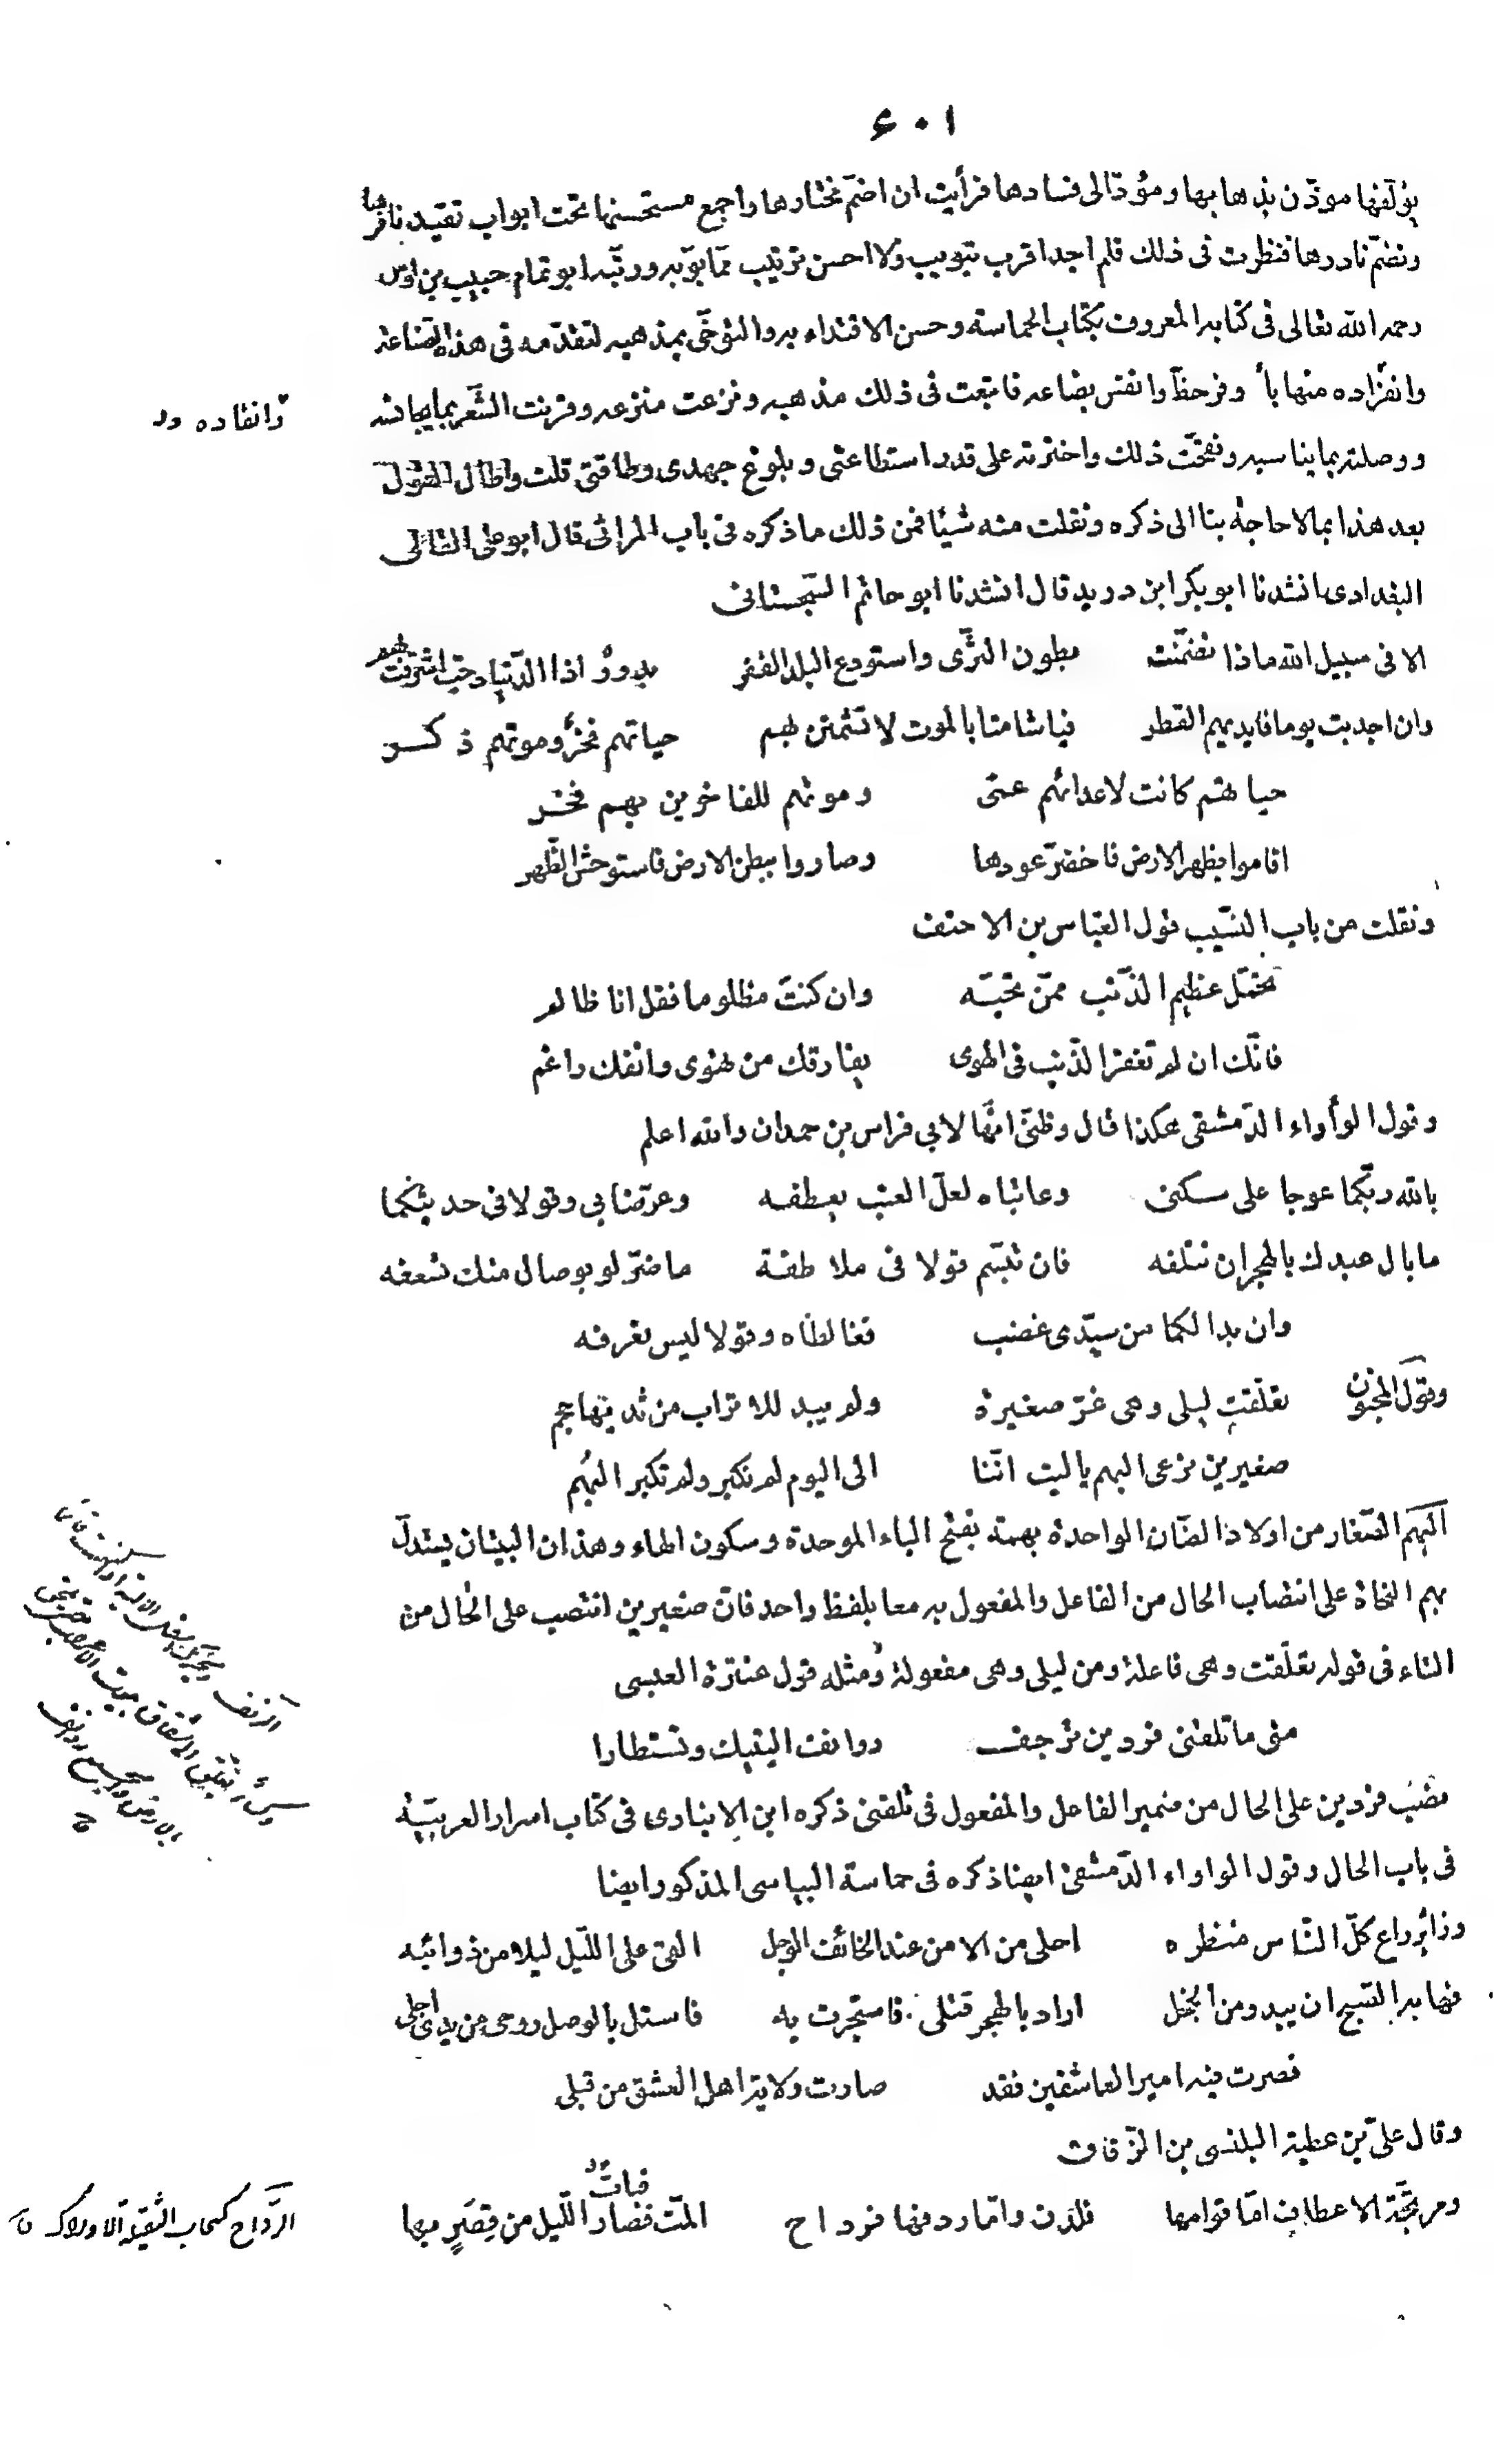 ٦٠١
يؤلّفها موذّن بذهابها ومؤدّ الى فسادها فرأيت ان اضمّ مختارها واجمع مستحسنها تحت ابواب تقيّد نافرها
وتضمّ نادرها فنظرت فى ذلك فلم اجد اقرب تبويب ولا احسن ترتيب ممّا بوّبه ورتّبه ابو تمام حبيب بن اوس
رحمه الله تعالى فى كتابه المعروف بكتاب الحماسة وحسن الاقتداء به والتوخّى بمذهبه لتقدّمه فى هذه الصّناعة
وانفراده منها بأ وفر حظّ وانفس بضاعه فاتبعت فى ذلك مذهبه ونزعت منزعه وقرنت الشّعر بما يجانسه
وانفاده ود
ووصلته بما يناسبه ونقّحت ذلك واخترته على قدر استطاعتى وبلوغ جهدى وطاقتى قلت واطال القول
بعد هذا بما لا حاجة بنا الى ذكره ونقلت منه شيئا فمن ذلك ما ذكره فى باب المراثى قال ابو على القالى
البغدادى انشدنا ابو بكر ابن دريد قال انشدنا ابو حاتم السّجستانى
الا فى سبيل الله ماذا تضمّنت بطون الثرّى واستودع البلد القفر بدورٌ اذا الدّنيا دجت اشرقت بهم
وان اجدبت يوما فايديهم القطر فيا شامتا بالموت لا تشمتن بهم حياتهم فخرٌ وموتهم ذكر
حياتهم كانت لاعدائهم عمى وموتهم للفاخرين بهم فخر
اقاموا بظهر الارض فاخضرّ عودها وصاروا ببطن الارض فاستوحش الظّهر
ونقلت من باب النسّيب قول العبّاس بن الاحنف
تحمّل عظيم الذّنب ممّن تحبّه وان كنتَ مظلوما فقل انا ظالم
فانّك ان لم تغفر الذّنب فى الهوى يفارقك من تهوى وانفك راغم
وقول الوأواء الدّمشقى هكذا قال وظنّى انّها لابى فراس بن حمدان والله اعلم
بالله ربّكما عوجا على سكنى وعاتباه لعلّ العتب يعطفه وعرّضا بى وقولا فى حديثكما
ما بال عبدك بالهجران تتلفه فان تبسّم قولا فى ملاطفة ما ضرّ لو بوصال منك تسعفه
وان بدا لكما من سيّدى غضب فغالطاه وقولا ليس نعرفه
وقول المجنون تعلّقت ليلى وهى غرّ صغيرة ولم يبد للاتراب من ثديها حجم
صغيرين نرعى البهم يا ليت انّنا الى اليوم لم نكبر ولم تكبر البهم
البهم الصّغار من اولاد الضّان الواحدة بهمة بفتح الباء الموحدة وسكون الهاء وهذان البيتان يستدلّ
بهم النحاة على انتصاب الحال من الفاعل والمفعول به معا بلفظ واحد فانّ صغيرين انتصب على الحال من
التاء فى قوله تعلّقت وهى فاعلة ومن ليلى وهى مفعولة ومثله قول عنترة العبسى
متى ما تلقنى فردين ترجف روانف اليتيك وتستطارا
نصب فردين على الحال من ضمير الفاعل والمفعول فى تلقنى ذكره ابن الانبارى فى كتاب اسرار العربيّة
فى باب الحال وقول الواواء الدّمشقى ايضا ذكره فى حماسة البياسى المذكور ايضا
وزائر راع كلّ النّاس منظره احلى من الامن عند الخائف الوجل القى على اللّيل ليلا من ذوائبه
فهابه الصّبح ان يبدو من الخجل اراد بالهجر قتلى فاستجرت به فاستل بالوصل روحى من يدى اجلى
فصرت فيه امير العاشقين فقد صارت ولاية اهل العشق من قبلى
وقال علىّ بن عطية البلنسى بن الزّقاق
ومرتجّة الاعطاف امّا قوامها فلدن وامّا ردفها فرداح المّت فبات اللّيل من قِصَرٍ بها
فصار
الرّداح كسحاب الثقيلة الاوراك ق